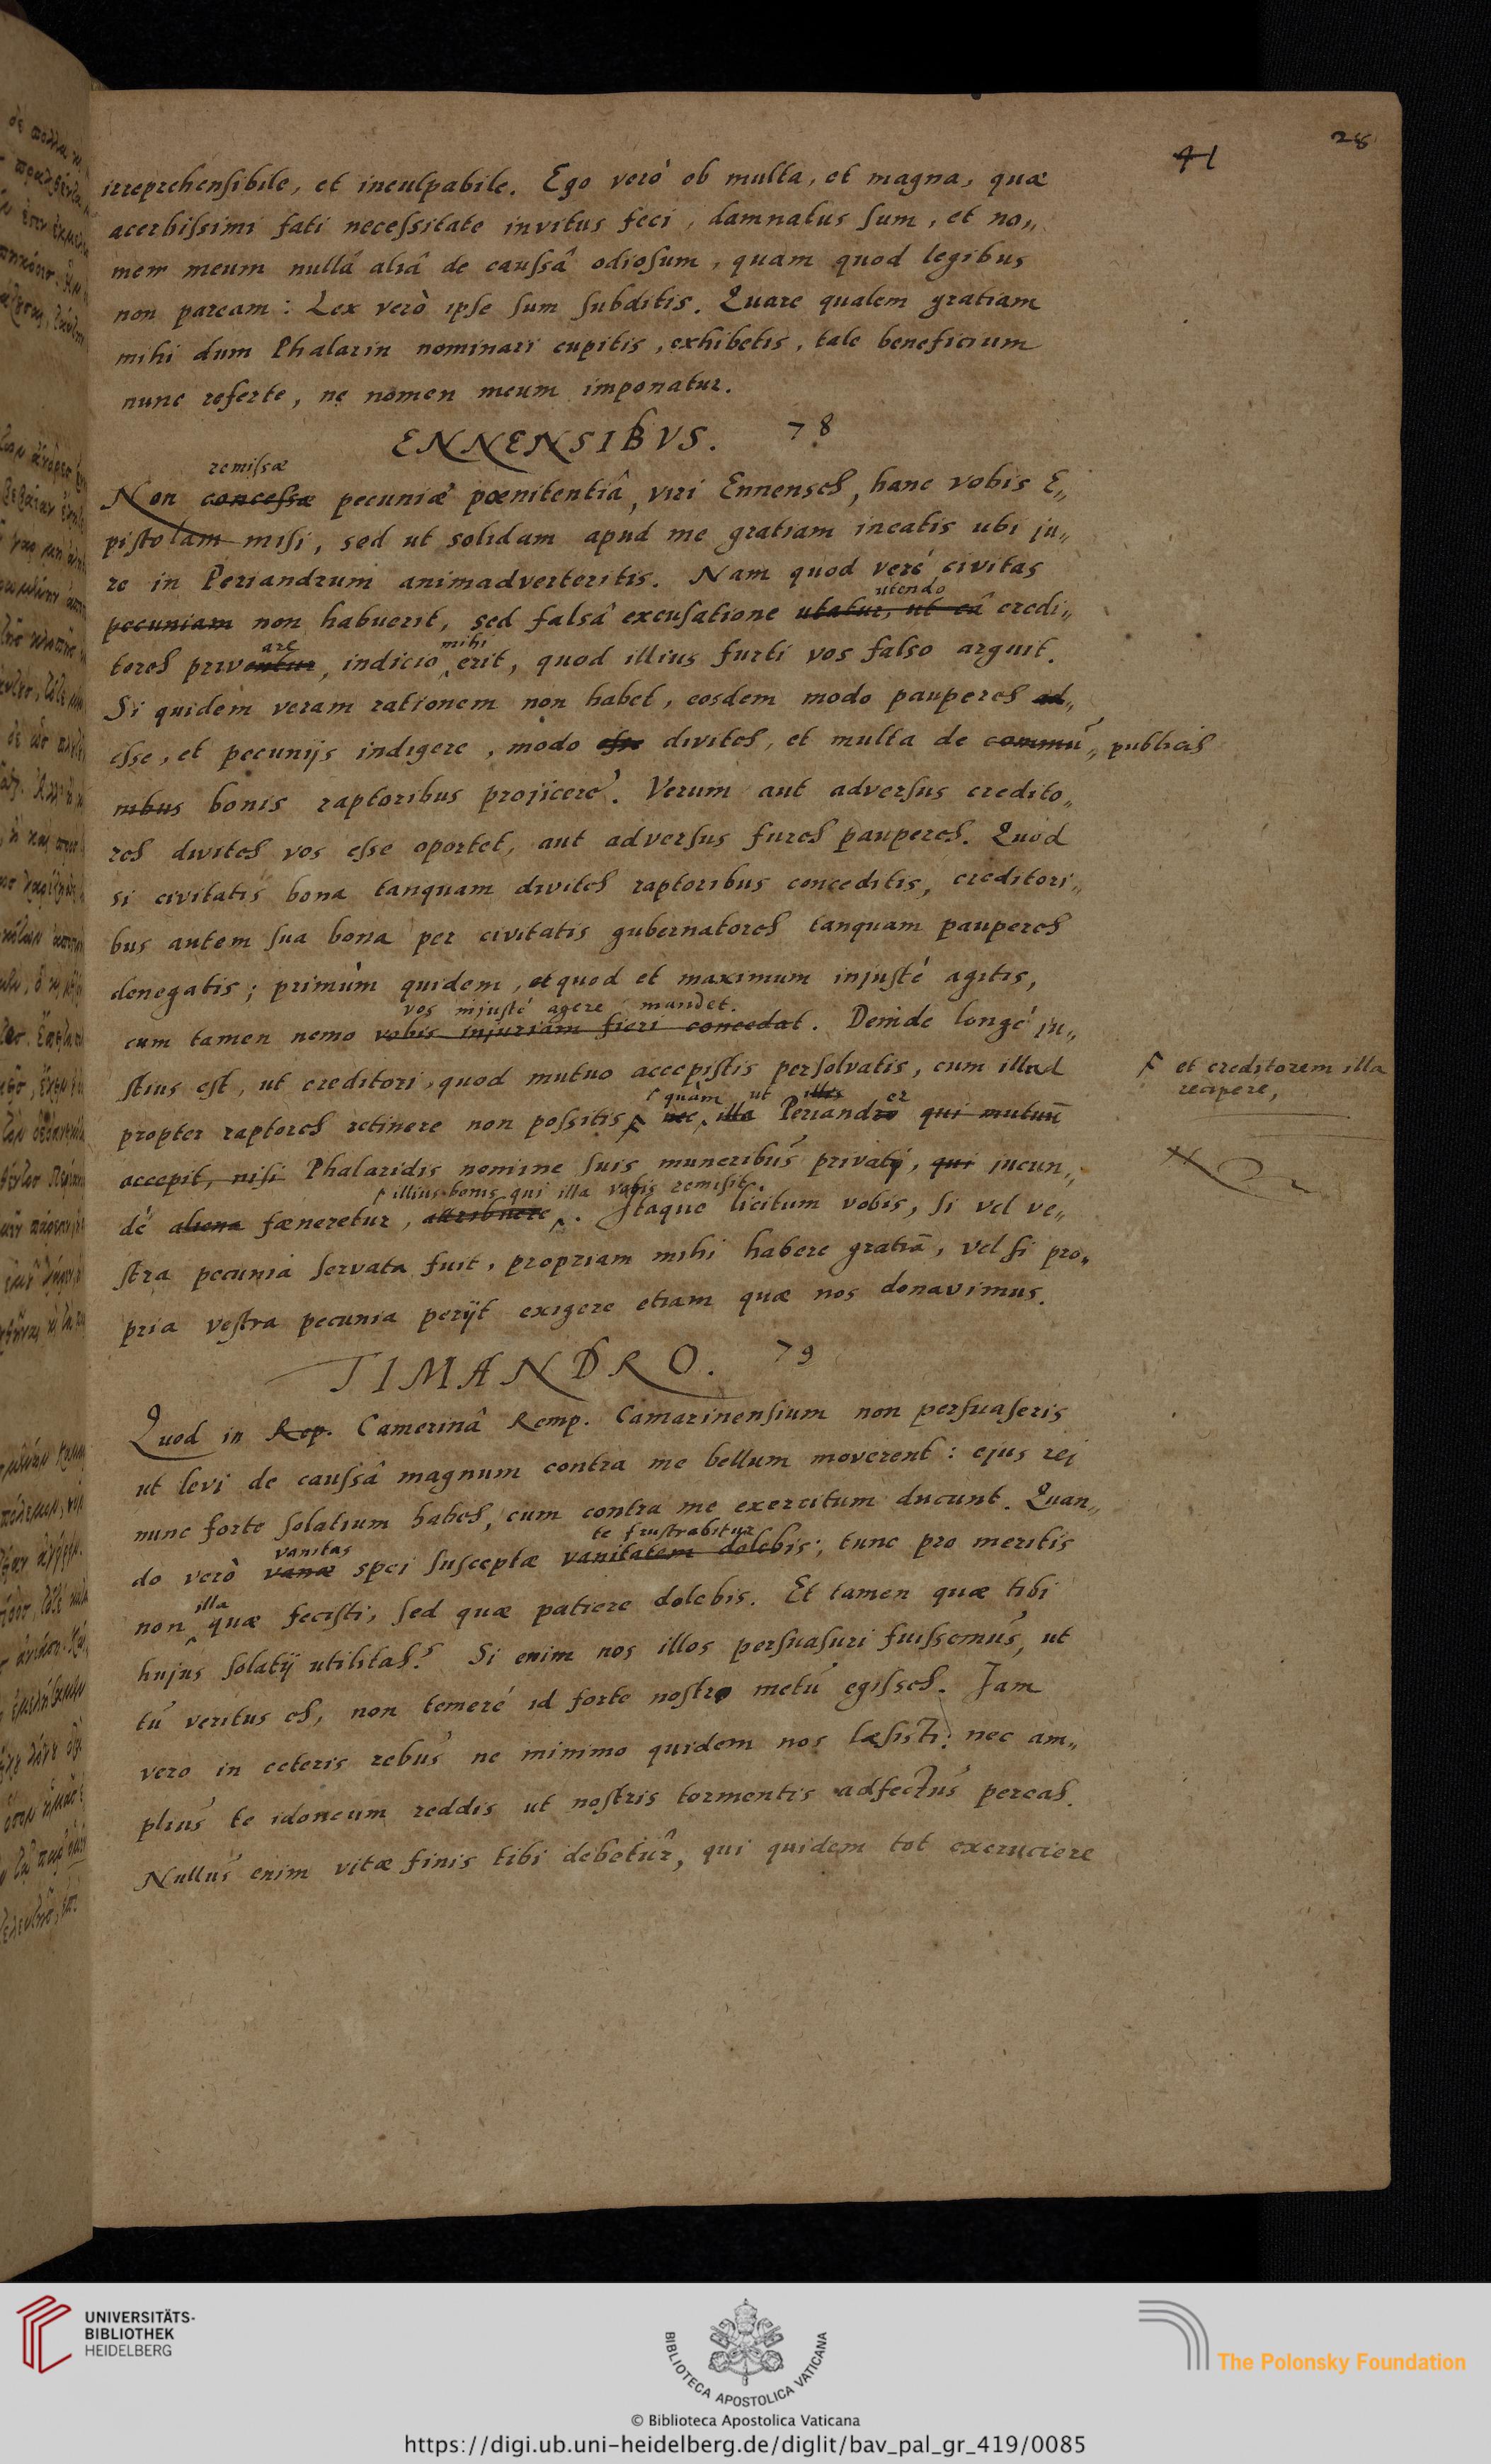 41
28
irreprehensibile, et inculpabile. Ego verò ob multa, et magna, quæ
acerbissimi fati necessitate invitus feci, damnatus sum, et no„
men meum nullâ aliâ de caussâ odiosum, quam quod legibus
non paream: Lex verò ipse sum subditis. Quare qualem gratiam
mihi dum Phalarin nominari cupitis, exhibetis, tale beneficium
nunc referte, ne nomen meum imponatur.
ENNENSIBVS. 78
remissæ
Non concessæ pecuniæ pœnitentiâ, viri Ennenses, hanc vobis E„
pistolam misi, sed ut solidam apud me gratiam ineatis ubi ju„
re in Periandrum animadverteritis. Nam quod verè civitas
utendo
pecuniam non habuerit, sed falsâ excusatione utatur, ut eâ credi„
are mihi
tores priventur, indicio erit, quod illius furti vos falso arguit.
Si quidem veram rationem non habet, eosdem modo pauperes ad„
esse, et pecunijs indigere, modo esse divites, et multa de commu„ publicis
nibus bonis raptoribus projicere. Verum aut adversus credito„
res divites vos esse oportet, aut adversus fures pauperes. Quod
si civitatis bona tanquam divites raptoribus conceditis, creditori„
bus autem sua bona per civitatis gubernatores tanquam pauperes
denegatis; primùm quidem, et quod et maximum injustè agitis,
vos injustè agere mandet.
cum tamen nemo vobis injuriam fieri concedat. Deinde longè ju„
stius est, ut creditori, quod mutuo accepistis persolvatis, cum illud
et creditorem illa
recipere,
quàm ut illes er
propter raptores retinere non possitis nec illa Periandro qui mutuū
accepit, nisi Phalaridis nomine suis muneribus privatij, qui jucun„
illius bonis qui illa vobis remisit.
dè aliena fæneretur, attribuere. Itaque licitum vobis, si vel ve„
stra pecunia servata fuit, propriam mihi habere gratiā, vel si pro„
pria vestra pecunia perijt exigere etiam quæ nos donavimus.
TIMANDRO. 79
Quod in Rep. Camerinâ Remp. Camarinensium non persuaseris
ut levi de caussâ magnum contra me bellum moverent: ejus rei
nunc forte solatium habes, cum contra me exercitum ducunt. Quan„
vanitas te frustrabitur
do verò vanæ spei susceptæ vanitatem dolebis; tunc pro meritis
illa
non quæ fecisti, sed quæ patiere dolebis. Et tamen quæ tibi
hujus solatij utilitas? Si enim nos illos persuasuri fuissemus, ut
tu veritus es, non temerè id forte nostro metu egisses. Jam
vero in ceteris rebus ne minimo quidem nos læsisti: nec am„
plius te idoneum reddis ut nostris tormentis adfectus pereas.
Nullus enim vitæ finis tibi debetur, qui quidem tot excruciere
UNIVERSITÄTS-
BIBLIOTHEK
HEIDELBERG
BIBLIOTECA APOSTOLICA VATICANA
The Polonsky Foundation
© Biblioteca Apostolica Vaticana
https://digi.ub.uni-heidelberg.de/diglit/bav_pal_gr_419/0085